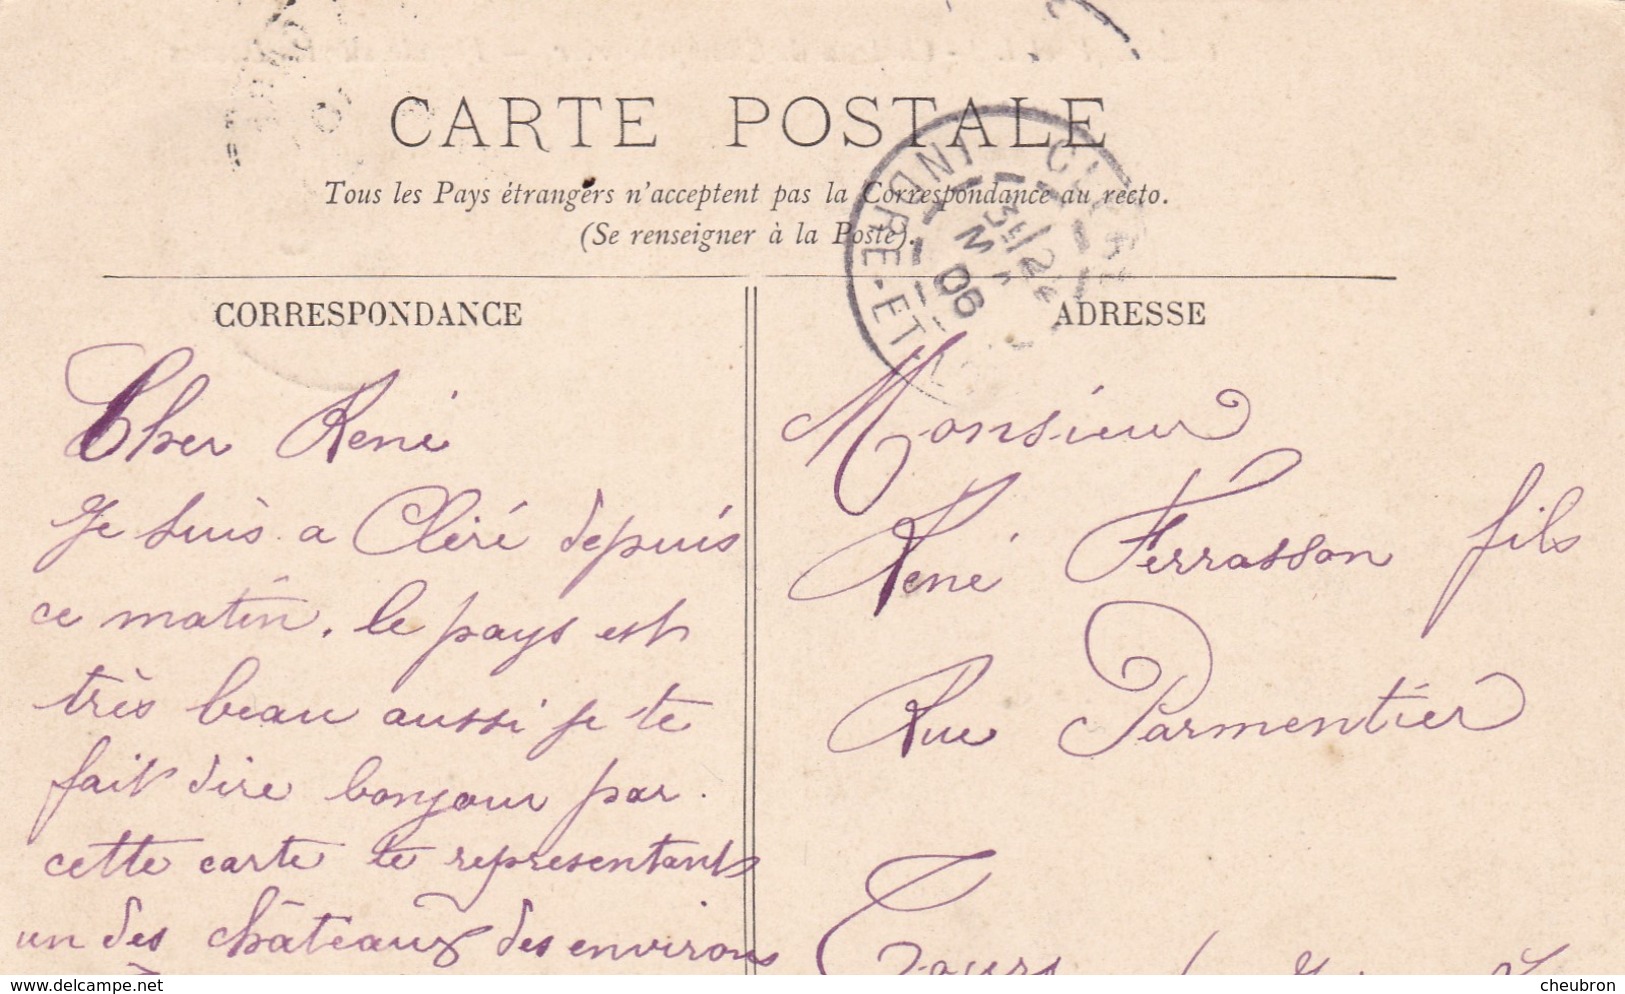 CARTE POSTALE
Tous les Pays étrangers n'acceptent pas la Correspondance au recto.
(Se renseigner à la Poste).
CORRESPONDANCE
Cher René
Je suis a Cléré depuis
ce matin. le pays est
très beau aussi je te
fait dire bonjour par.
cette carte te representant
un des châteaux des environs
ADRESSE
Monsieur
René Ferrasson fils
Rue Parmentier
Tours
INDRE-ET
06
www.delcampe.net
cheubron